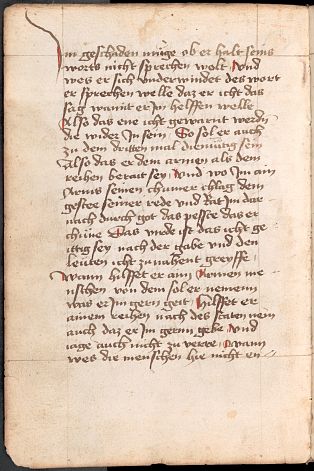 Im geschaden müge ob er halt seins
worts nicht sprechen wolt Und
wes er sich underwindet des wort
er sprechen welle daz er icht das
sag wamit er Im helffen welle
Also das ene icht gewarnt werdn
die wider In sein So sol er auch
zu dem dritten mal diemütig sein
Also das er dem armen als dem
reihen berait sey Und wo Im ain
Armis seinen chumer chlag dem
gestee seiner rede und Rat Im dar
nach durch got das peste das er
chüne Das vierde ist das icht ge
ittig sey nach der gabe und den
leuten icht zu nahent greyffe
Wann hilffet er ainem armen me
nschen von dem sol er nemenn
was er Im gern geit hilffet er
ainem reihen nach des staten nem
auch daz er Im gernn gebe und
iage auch nicht zu verre wann
wes die menschen hie nicht en